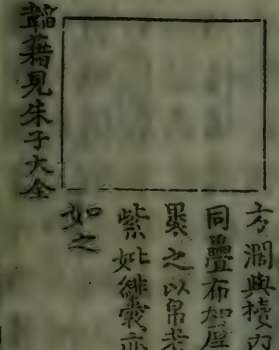 方濶與櫝內
同疊布加厚
褁之以帛考
紫妣緋囊亦
如之
韜藉見朱子大全